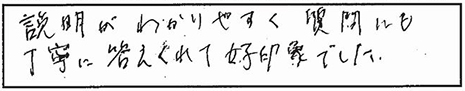 説明がわかりやすく質問にも
丁寧に答えてくれて好印象でした。